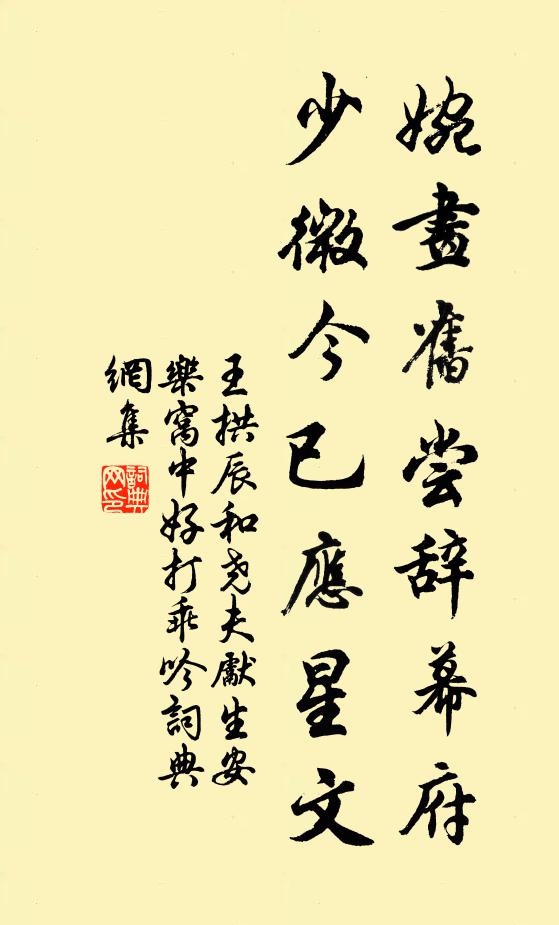 婉畫舊尝辞幕府
少微今已應星文
王拱辰和尧夫獻生安
樂窩中好打乖吟詞典
網集
詞典网印